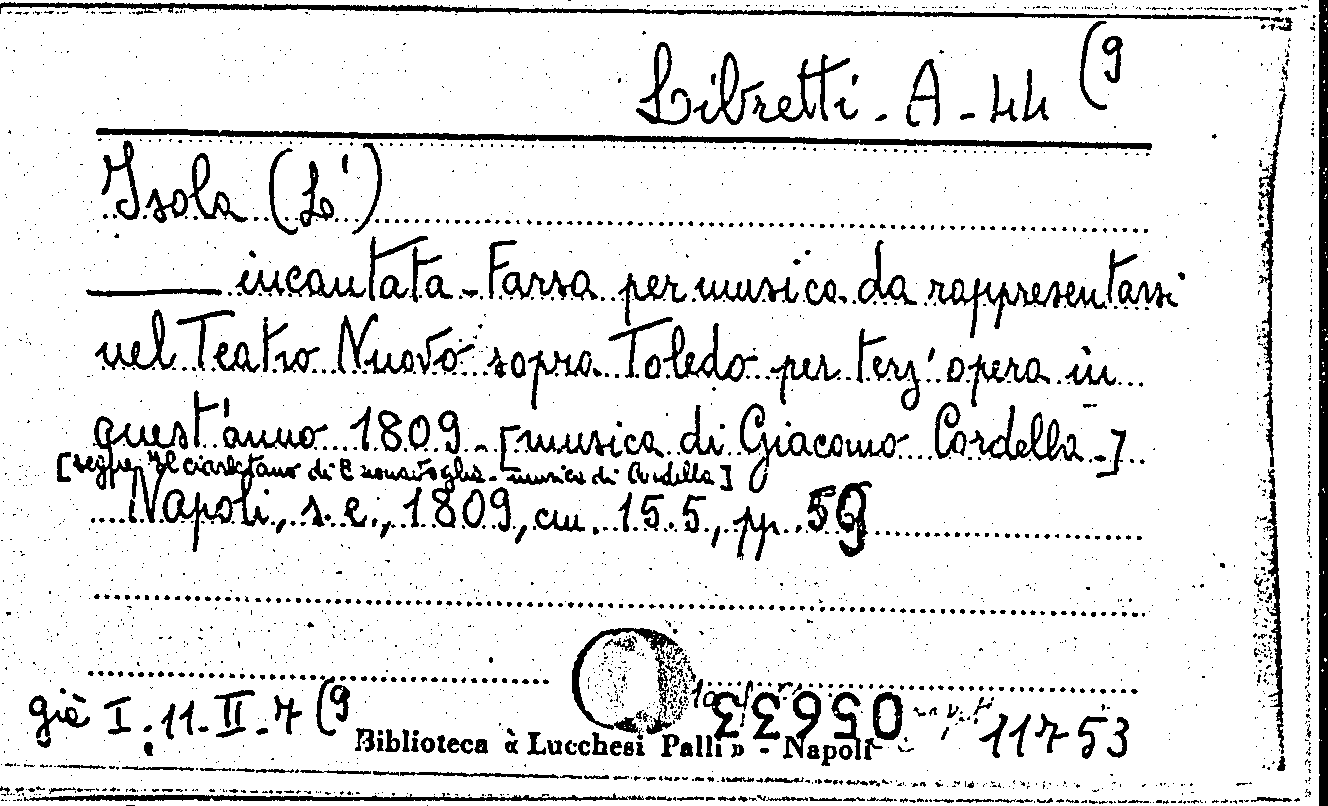 Libretti - A - 44 (9
Isola (L')
——— incantata - Farsa per musica da rappresentarsi
nel Teatro Nuovo sopra Toledo per terz' opera in
quest'anno 1809 - [musica di Giacomo Cordella -]
[segue "Il ciarlatano di Buonavoglia - musica di Cordella]
Napoli, s. e., 1809, cm. 15.5, pp. 59
già I. 11. II. 7 (9
05633
11753
Biblioteca « Lucchesi Palli » - Napoli